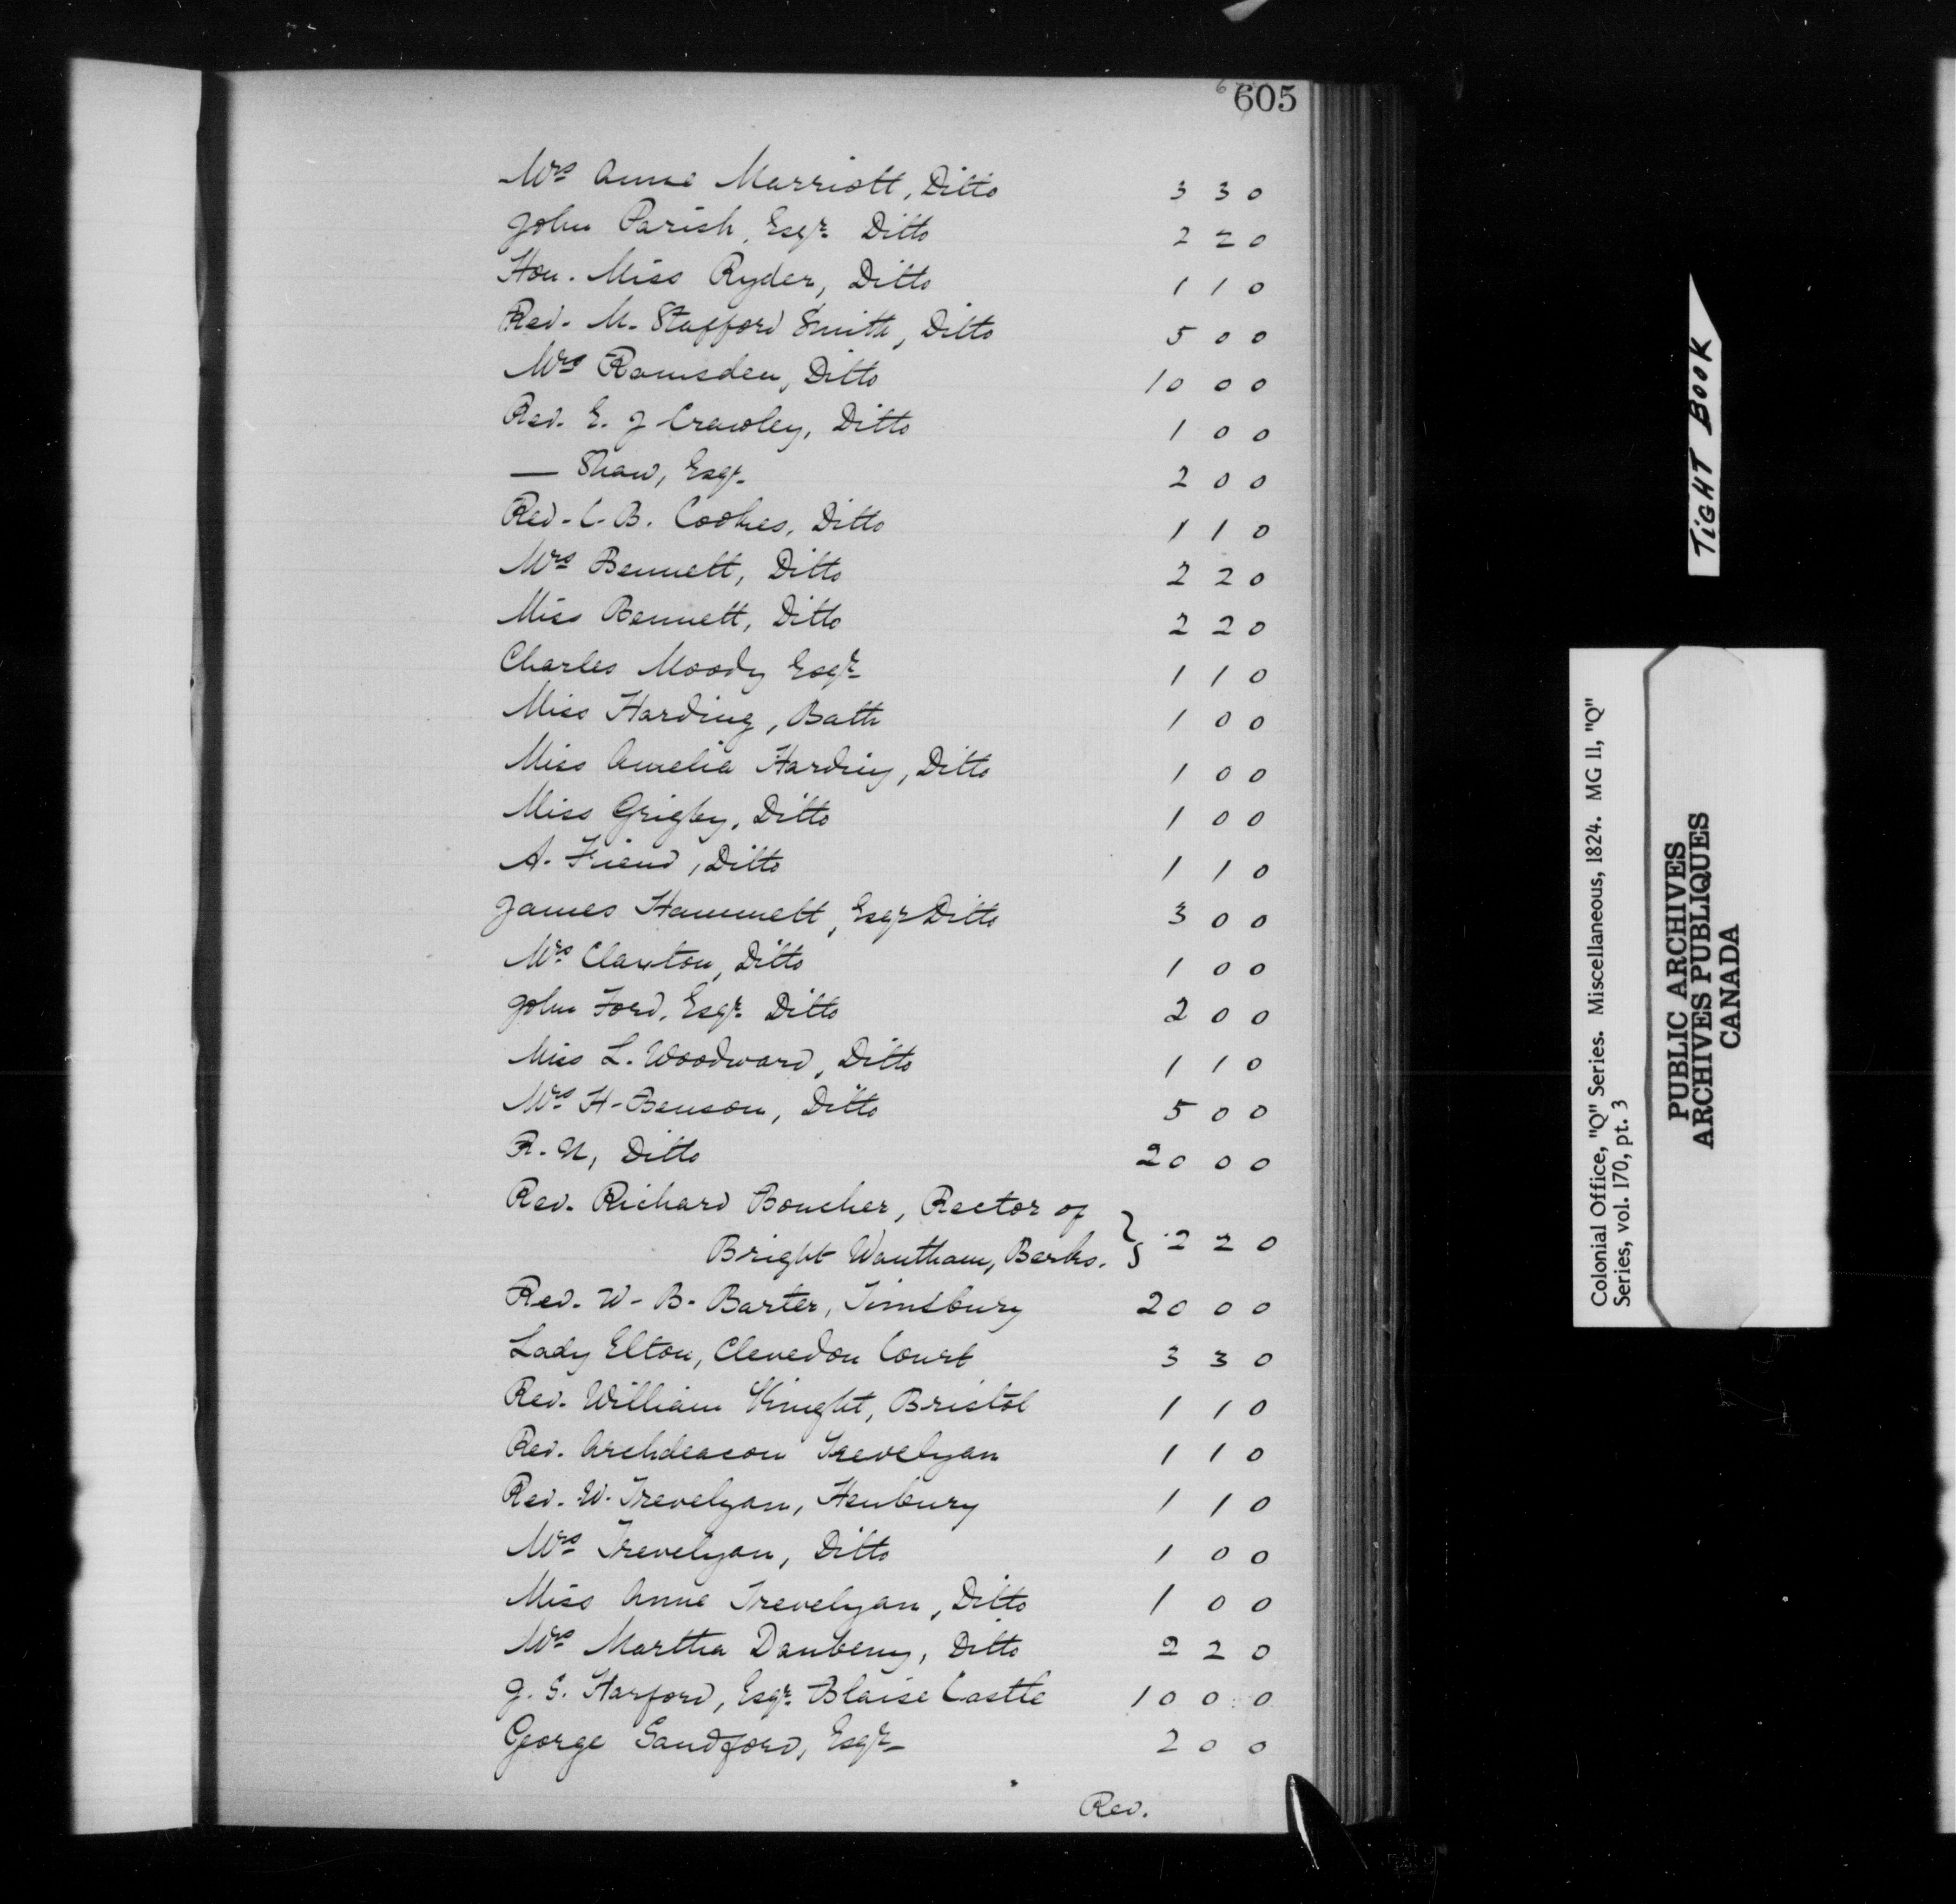 605
Mrs Anne Marriott, Ditto 3 3 0
John Parish, Esqr. Ditto 2 2 0
Hon. Miss Ryder, Ditto 1 1 0
Rev. M. Stafford Smith, Ditto 5 0 0
Mrs Ramsden, Ditto 10 0 0
Rev. E. J Crawley, Ditto 1 0 0
— Shaw, Esqr. 2 0 0
Rev. C. B. Cookes, Ditto 1 1 0
Mrs Bennett, Ditto 2 2 0
Miss Bennett, Ditto 2 2 0
Charles Moody Esqr 1 1 0
Miss Harding, Bath 1 0 0
Miss Amelia Harding, Ditto 1 0 0
Miss Grigby, Ditto 1 0 0
A. Friend, Ditto 1 1 0
James Hammett, Esqr Ditto 3 0 0
Mrs Claxton, Ditto 1 0 0
John Ford, Esqr. Ditto 2 0 0
Miss L. Woodward, Ditto 1 1 0
Mrs H. Benson, Ditto 5 0 0
R. N, Ditto 20 0 0
Rev. Richard Boucher, Rector of
Bright Wautham, Berks. } 2 2 0
Rev. W. B. Barter, Timsbury 20 0 0
Lady Elton, Clevedon Court 3 3 0
Rev. William Knight, Bristol 1 1 0
Rev. Archdeacon Trevelyan 1 1 0
Rev. W. Trevelyan, Henbury 1 1 0
Mrs Trevelyan, Ditto 1 0 0
Miss Anne Trevelyan, Ditto 1 0 0
Mrs Martha Daubeny, Ditto 2 2 0
J. S. Harford, Esqr. Blaise Castle 10 0 0
George Sandford, Esqr. 2 0 0
Rev.
TIGHT BOOK
Colonial Office, "Q" Series. Miscellaneous, 1824. MG 11, "Q"
Series, vol. 170, pt. 3
PUBLIC ARCHIVES
ARCHIVES PUBLIQUES
CANADA